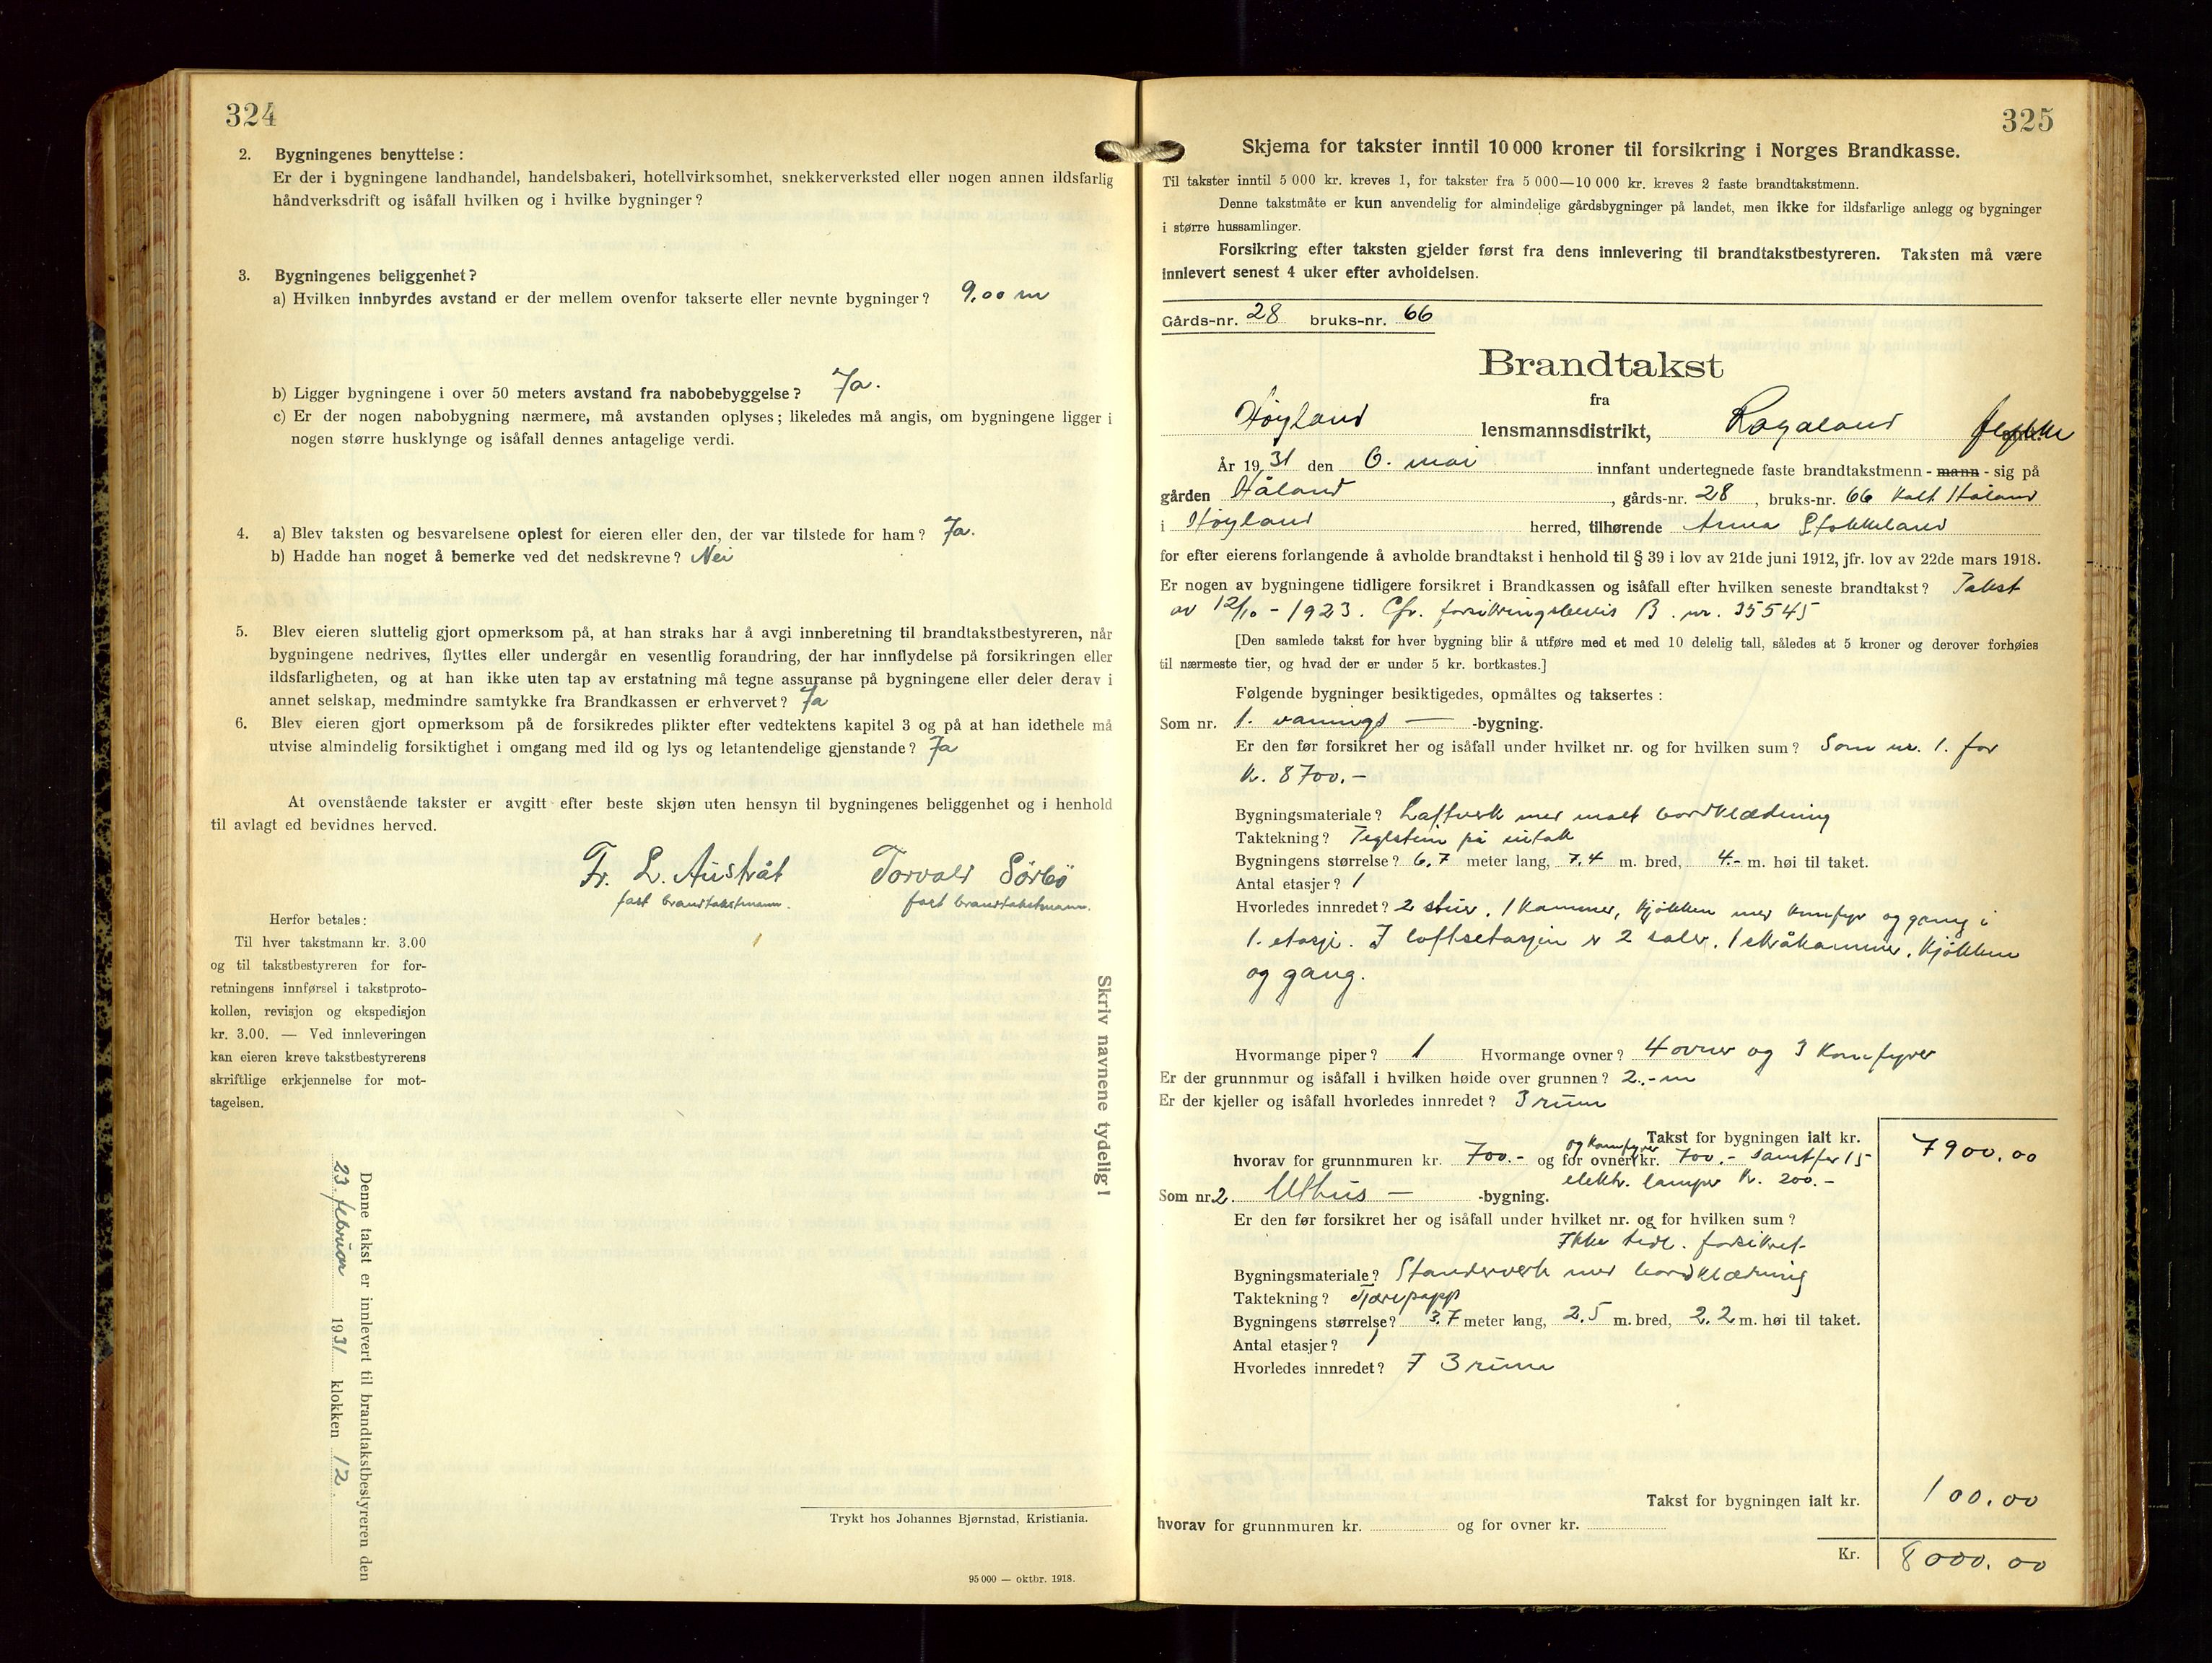 324
2. Bygningenes benyttelse:
Er der i bygningene landhandel, handelsbakeri, hotellvirksomhet, snekkerverksted eller nogen annen ildsfarlig
håndverksdrift og isåfall hvilken og i hvilke bygninger?
3. Bygningenes beliggenhet?
a) Hvilken innbyrdes avstand er der mellem ovenfor takserte eller nevnte bygninger? 9,00 m
b) Ligger bygningene i over 50 meters avstand fra nabobebyggelse? Ja.
c) Er der nogen nabobygning nærmere, må avstanden oplyses; likeledes må angis, om bygningene ligger i
nogen større husklynge og isåfall dennes antagelige verdi.
4. a) Blev taksten og besvarelsene oplest for eieren eller den, der var tilstede for ham? Ja.
b) Hadde han noget å bemerke ved det nedskrevne? Nei
5. Blev eieren sluttelig gjort opmerksom på, at han straks har å avgi innberetning til brandtakstbestyreren, når
bygningene nedrives, flyttes eller undergår en vesentlig forandring, der har innflydelse på forsikringen eller
ildsfarligheten, og at han ikke uten tap av erstatning må tegne assuranse på bygningene eller deler derav i
annet selskap, medmindre samtykke fra Brandkassen er erhvervet? Ja
6. Blev eieren gjort opmerksom på de forsikredes plikter efter vedtektens kapitel 3 og på at han idethele må
utvise almindelig forsiktighet i omgang med ild og lys og letantendelige gjenstande? Ja
At ovenstående takster er avgitt efter beste skjøn uten hensyn til bygningenes beliggenhet og i henhold
til avlagt ed bevidnes herved.
Fr. L. Austråt Torvald Sørbö
fast brandtakstmann. fast brandtakstmann.
Herfor betales:
Til hver takstmann kr. 3.00
og til takstbestyreren for for-
retningens innførsel i takstproto-
kollen, revisjon og ekspedisjon
kr. 3.00. — Ved innleveringen
kan eieren kreve takstbestyrerens
skriftlige erkjennelse for mot-
tagelsen.
Skriv navnene tydelig!
Denne takst er innlevert til brandtakstbestyreren den
23. februar 1931 klokken 12
Trykt hos Johannes Bjørnstad, Kristiania.
95000 — oktbr. 1918.
325
Skjema for takster inntil 10 000 kroner til forsikring i Norges Brandkasse.
Til takster inntil 5 000 kr. kreves 1, for takster fra 5 000—10 000 kr. kreves 2 faste brandtakstmenn.
Denne takstmåte er kun anvendelig for almindelige gårdsbygninger på landet, men ikke for ildsfarlige anlegg og bygninger
i større hussamlinger.
Forsikring efter taksten gjelder først fra dens innlevering til brandtakstbestyreren. Taksten må være
innlevert senest 4 uker efter avholdelsen.
Gårds-nr. 28 bruks-nr. 66
Brandtakst
fra
Høyland lensmannsdistrikt, Rogaland fylke
År 1931 den 6. mai innfant undertegnede faste brandtakstmenn - mann - sig på
gården Håland, gårds-nr. 28, bruks-nr. 66 kalt Håland
i Høyland herred, tilhørende Anna Stokkeland
for efter eierens forlangende å avholde brandtakst i henhold til § 39 i lov av 21de juni 1912, jfr. lov av 22de mars 1918.
Er nogen av bygningene tidligere forsikret i Brandkassen og isåfall efter hvilken seneste brandtakst? Takst
av 12/10 - 1923. Cfr. forsikringsbevis B. nr. 35545
[Den samlede takst for hver bygning blir å utføre med et med 10 delelig tall, således at 5 kroner og derover forhøies
til nærmeste tier, og hvad der er under 5 kr. bortkastes.]
Følgende bygninger besiktigedes, opmåltes og taksertes:
Som nr. 1. vanings — -bygning.
Er den før forsikret her og isåfall under hvilket nr. og for hvilken sum? Som nr. 1. for
kr. 8700.-
Bygningsmateriale? Laftverk med malt bordklædning
Taktekning? Teglstein på
Bygningens størrelse? 6,7 meter lang, 7,4 m. bred, 4.- m. høi til taket.
Antal etasjer? 1
Hvorledes innredet? 2 stuer, 1 kammer, kjøkken med komfyr og gang i
1. etasje. I loftsetasjen er 2 saler, 1 skråkammer, kjøkken
og gang.
Hvormange piper? 1 Hvormange ovner? 4 ovner og 3 komfyrer
Er der grunnmur og isåfall i hvilken høide over grunnen? 2.- m
Er der kjeller og isåfall hvorledes innredet? 3 rum
Takst for bygningen ialt kr. 7900.00
hvorav for grunnmuren kr. 700.- og for ovner og komfyrer kr. 700.- samt for 15
elektr. lamper kr. 200.-
Som nr. 2. Uthus — -bygning.
Er den før forsikret her og isåfall under hvilket nr. og for hvilken sum?
Ikke tidl. forsikret
Bygningsmateriale? Standerverk med bordklædning
Taktekning? Tjærepapp
Bygningens størrelse? 3,7 meter lang, 2.5 m. bred, 2.2 m. høi til taket.
Antal etasjer? 1
Hvorledes innredet? I 3 rum
Takst for bygningen ialt kr. 100.00
hvorav for grunnmuren kr. og for ovner kr.
Kr. 8000.00